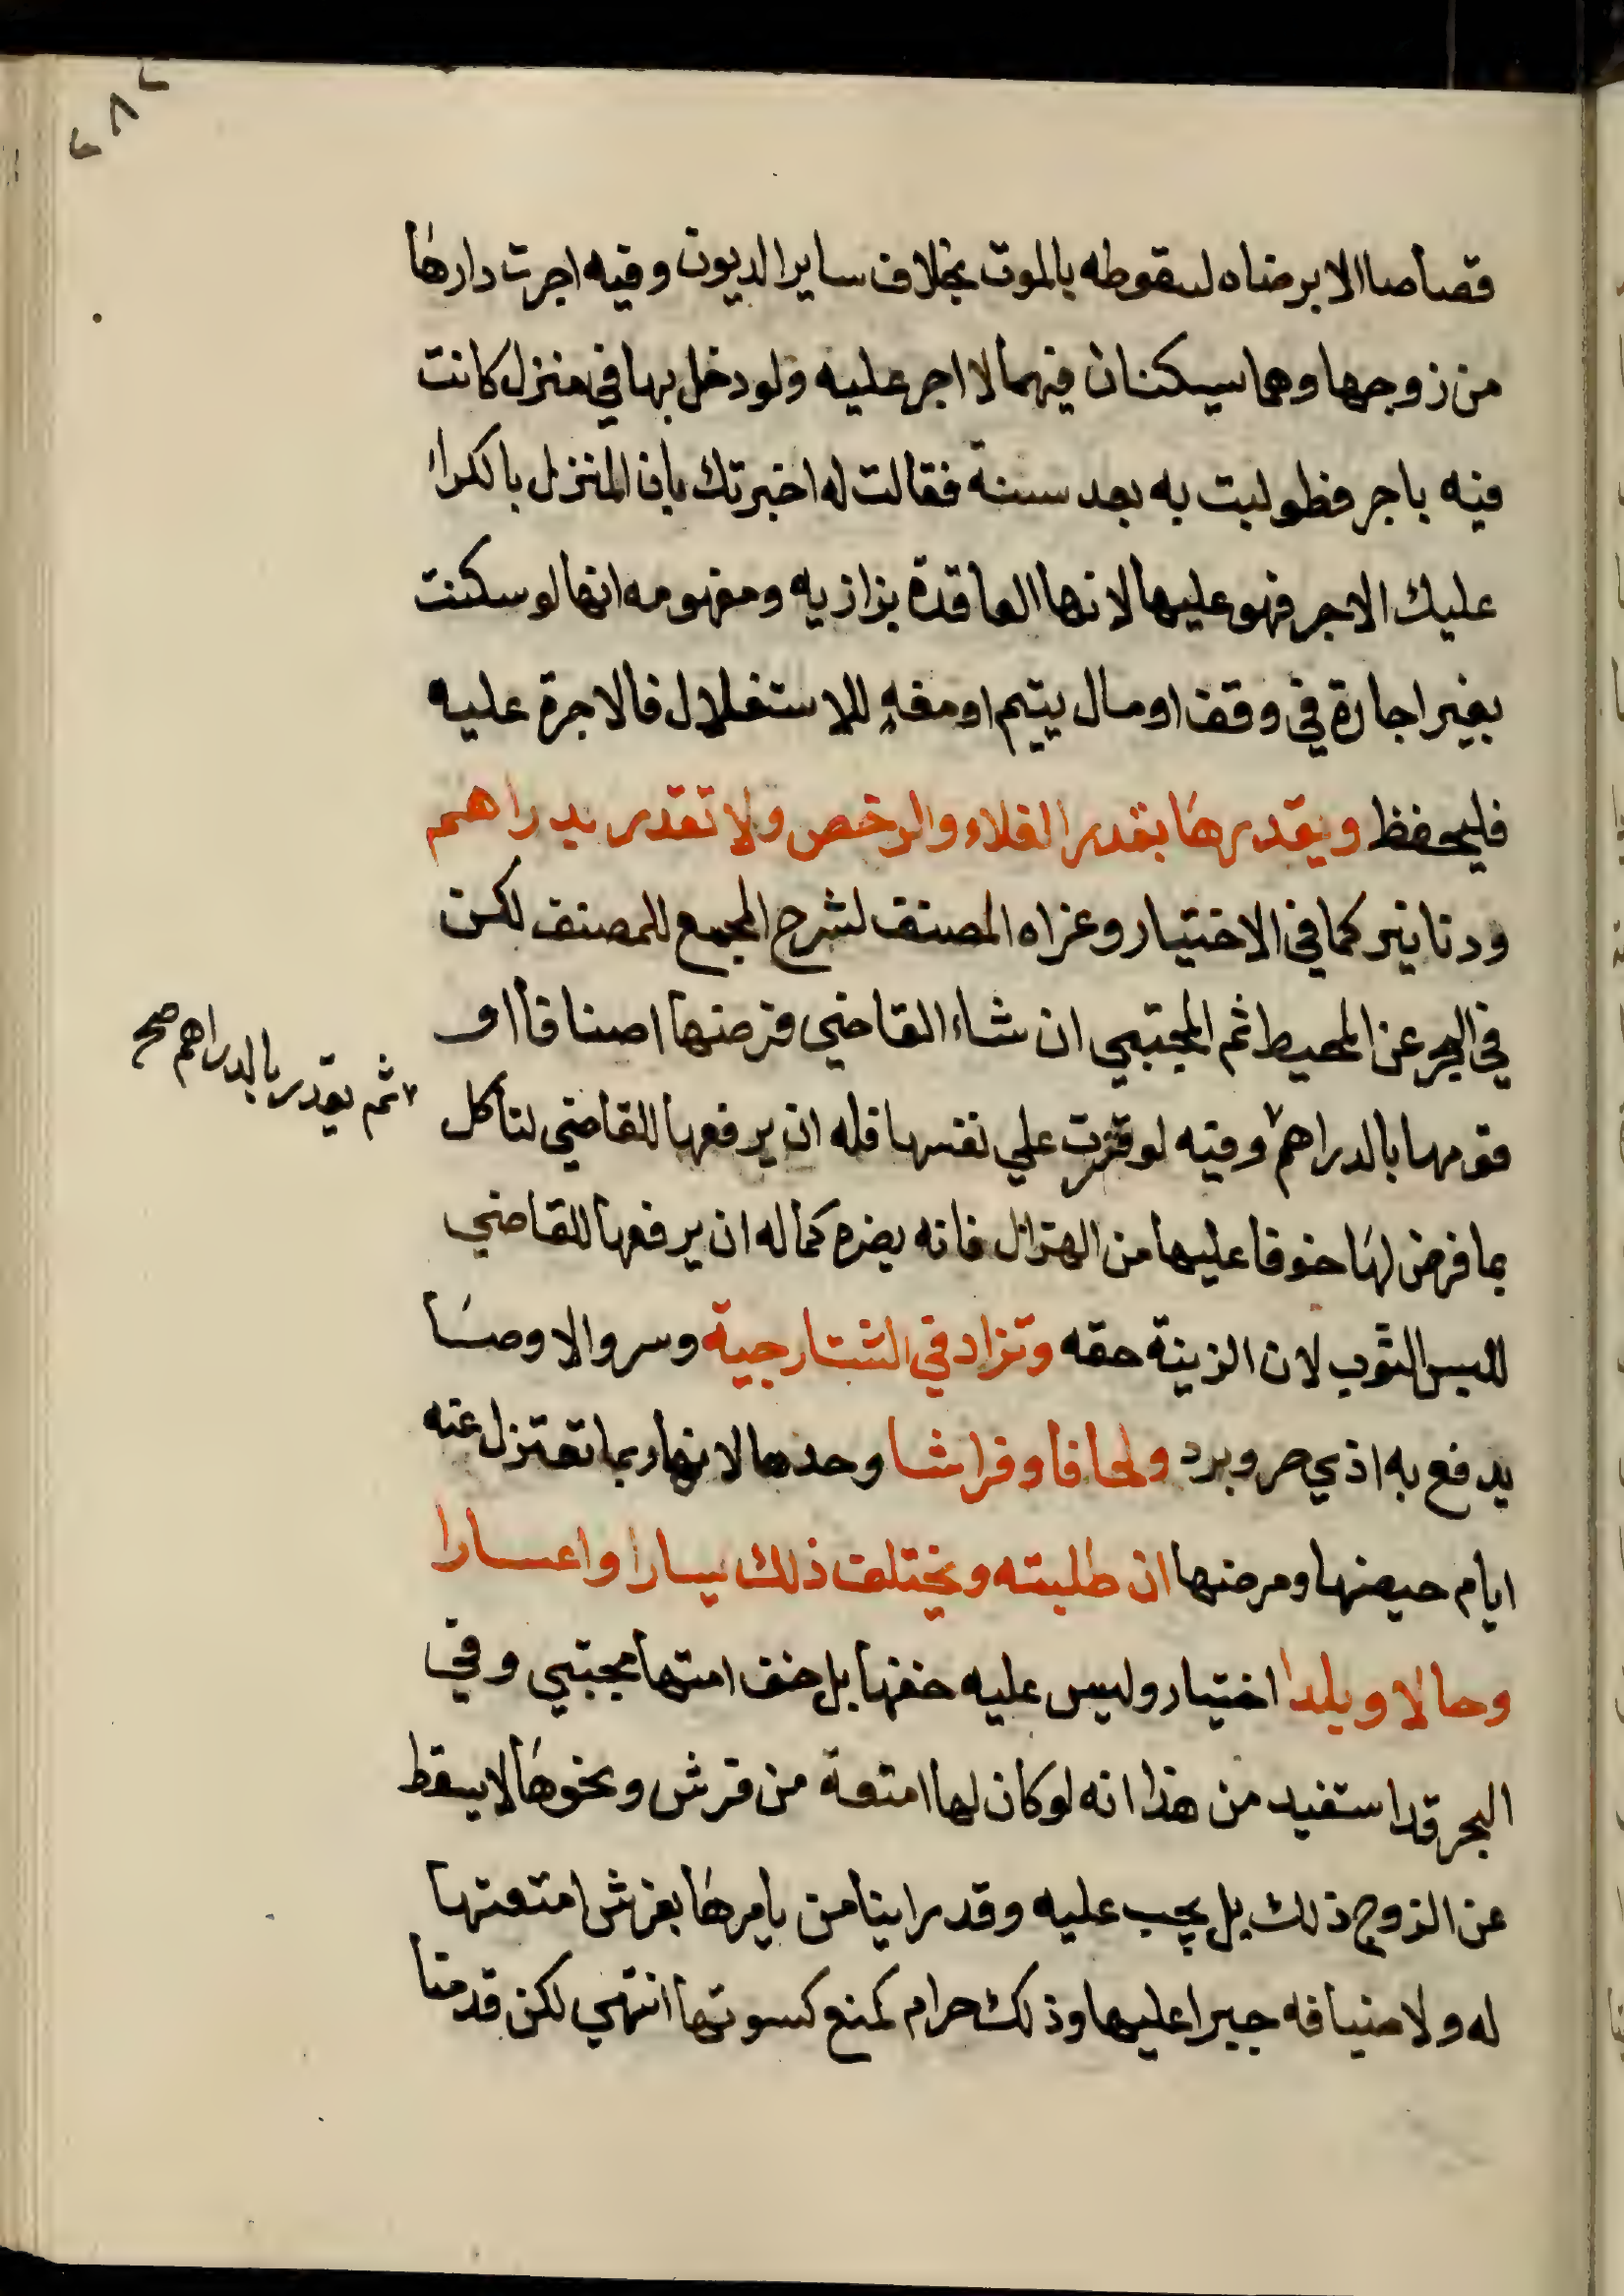 ٢٨٢
قصاصا الا برضاه لسقوطه بالموت بخلاف ساير الديون وفيه اجرت دارها
من زوجها وهما يسكنان فيهما لا اجر عليه ولو دخل بها في منزل كانت
فيه باجر فطولبت به بعد سنة فقالت له اخبرتك بان المنزل بالكراء
عليك الاجر فهو عليها لانها العاقدة بزازيه ومفهومه انها لو سكنت
بغير اجارة في وقف او مال يتيم او معد للاستغلال فالاجرة عليه
فليحفظ ويقدرها بقدر الغلاء والرخص ولا تقدر بدراهم
ودنانير كما في الاختيار وعزاه المصنف لشرح المجمع للمصنف لكن
في البحر عن المحيط ثم المجتبي ان شاء القاضي فرضها اصنافا او
قومها بالدراهم وفيه لو قترت علي نفسها فله ان يرفعها للقاضي لتاكل
ثم يقدر بالدراهم صح
بما فرض لها خوفا عليها من الهزال فانه يضره كما له ان يرفعها للقاضي
للبس الثوب لان الزينة حقه وتزاد في الشتا جبة وسروالا وصا
يدفع به اذي حر وبرد ولحافا وفراشا وحدها لانها ربما تعتزل عنه
ايام حيضها ومرضها ان طلبته ويختلف ذلك يسارا واعسارا
وحالا وبلدا اختيار وليس عليه خفها بل خف امتها مجتبي وفي
البحر قد استفيد من هذا انه لو كان لها امتعة من فرش ونحوها لا يسقط
عن الزوج ذلك بل يجب عليه وقد راينا من يامرها بفرش امتعتها
له ولاضيافه جبرا عليها وذلك حرام كمنع كسوتها انتهي لكن قدمنا